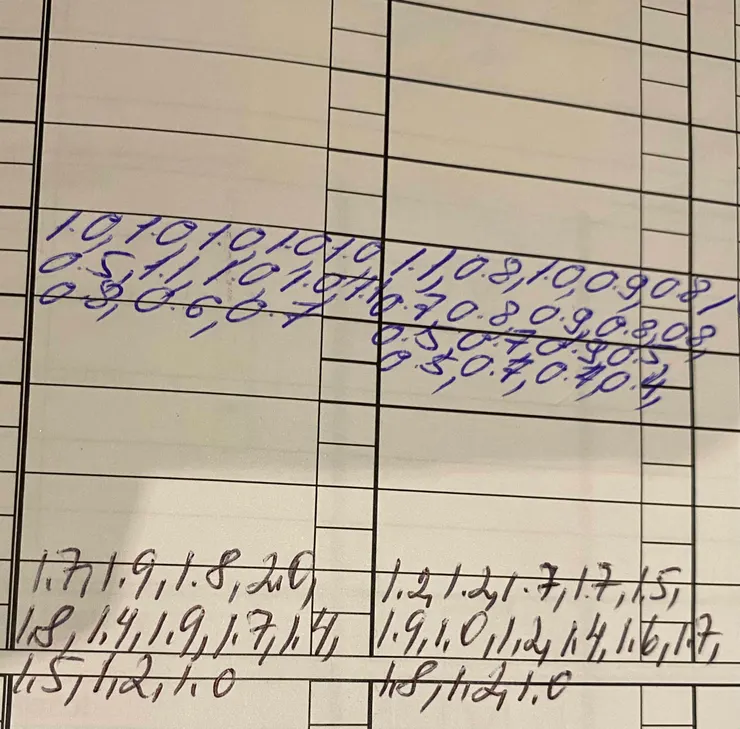 1.0, 1.0, 1.0 1.0, 1.0
0.5, 1.1, 1.0, 1.0, 1.1
0.8, 0.6, 0.7
1.1, 0.8, 1.0, 0.9, 0.8,
0.7, 0.8, 0.9, 0.8, 0.8,
0.5, 0.7, 0.9, 0.5,
0.5, 0.7, 0.7, 0.4,
1.7, 1.9, 1.8, 2.0,
1.8, 1.4, 1.9, 1.7, 1.4,
1.5, 1.2, 1.0
1.2, 1.2, 1.7, 1.7, 1.5,
1.9, 1.0, 1.2, 1.4, 1.6, 1.7,
1.8, 1.2, 1.0